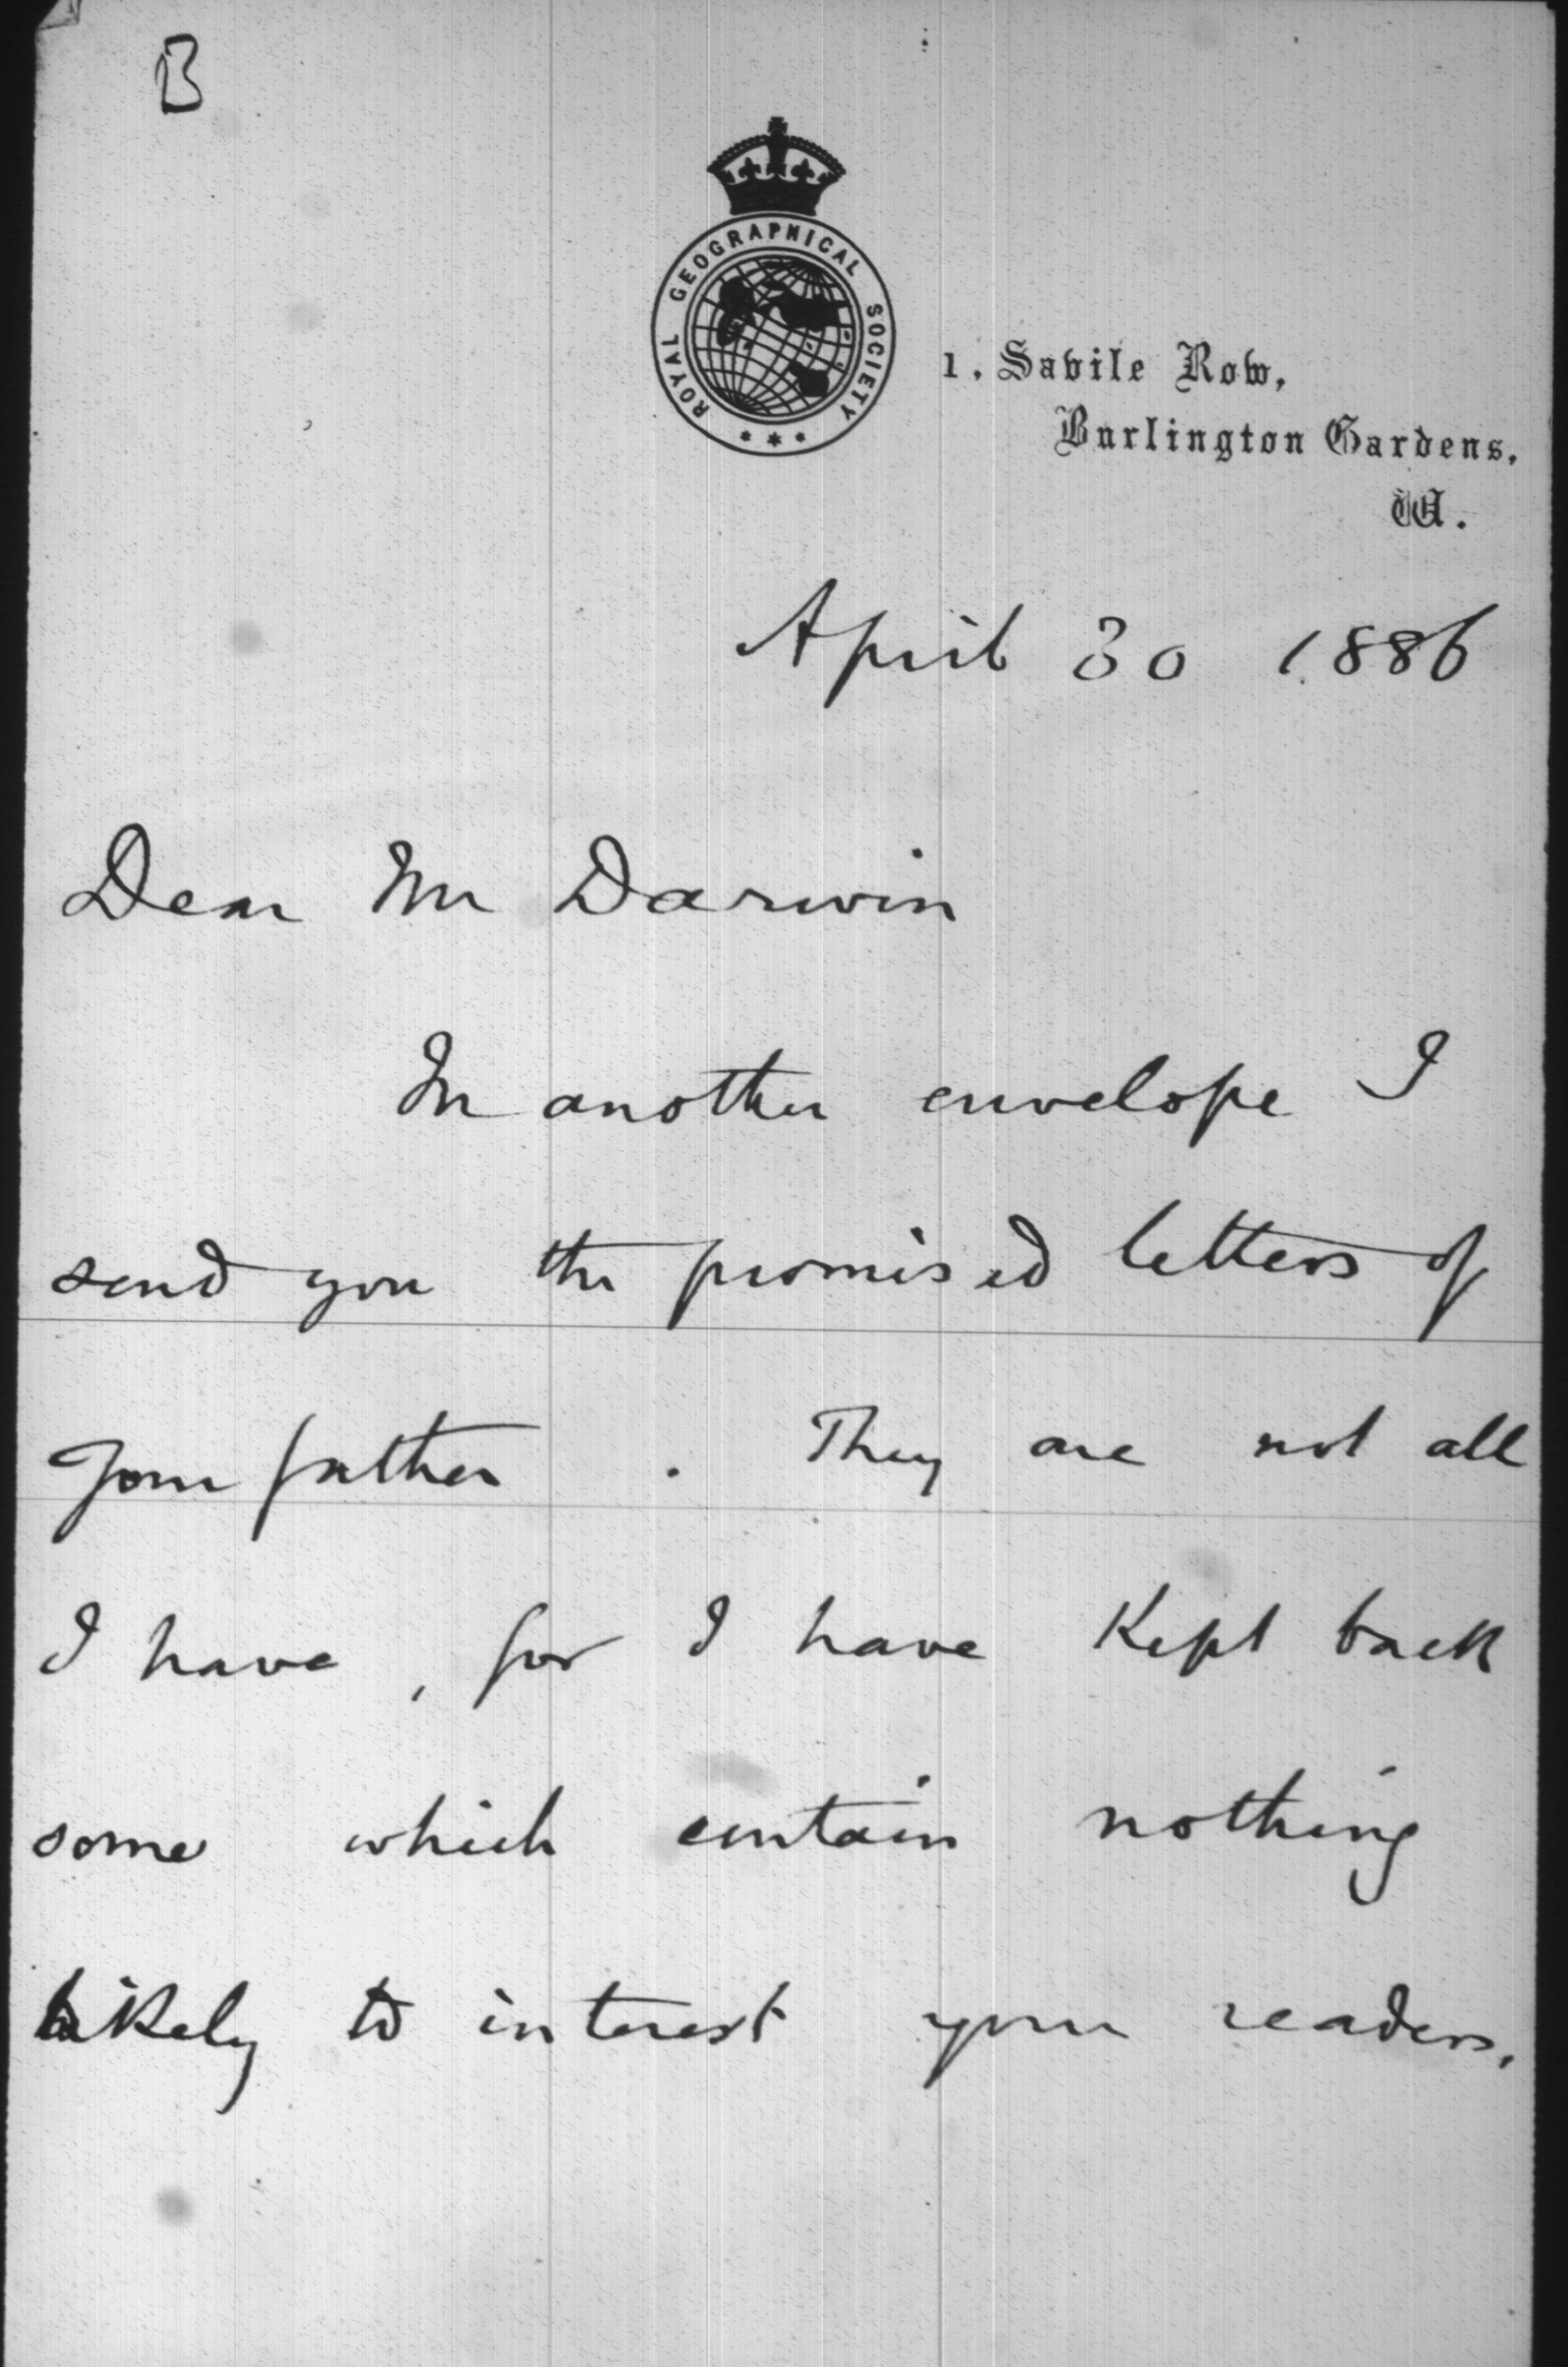 B
ROYAL GEOGRAPHICAL SOCIETY
1. Savile Row,
Burlington Gardens,
W.
April 30 1886
Dear Mr Darwin
In another envelope I
send you the promised letters of
your father . They are not all
I have , for I have Kept back
some which contain nothing
likely to interest your readers.